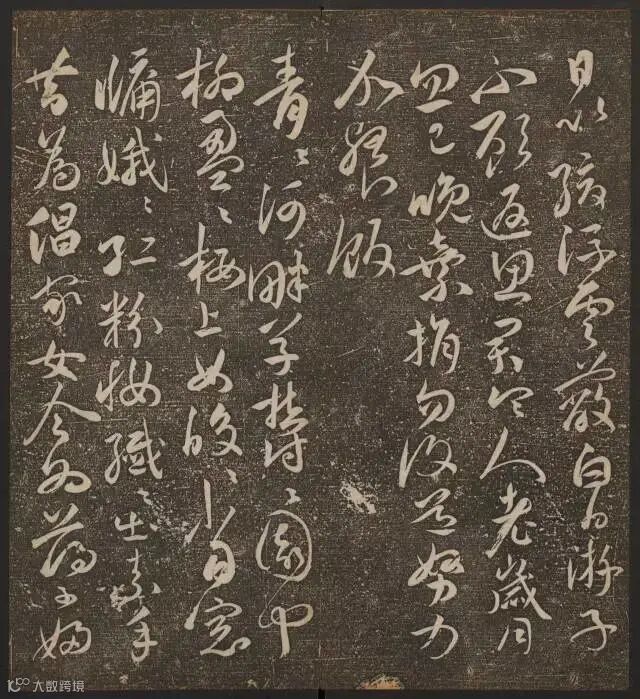 日以緩浮雲蔽白日游子
不顧返思君令人老歲月
忽已晚棄捐勿復道努力
加餐飯
青々河畔草鬱々園中
柳盈々樓上女皎々當窗
牖娥々紅粉妝纖々出素手
昔為倡家女今為蕩子婦
大数跨境